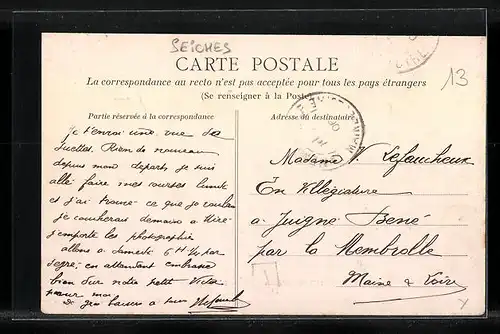 SEICHES
CARTE POSTALE
13
La correspondance au recto n'est pas acceptée pour tous les pays étrangers
(Se renseigner à la Poste)
Partie réservée à la correspondance
Adresse du destinataire
je t'envoi une vue des
Rien de nouveau
depuis mon départ je suis
allé faire mes courses
et j'ai trouvé ce que je voulais
je coucherai demain a
j'emporte les photographies
allons a Samedi 6 H 1/2 par
Segré, en attendant embrasse
bien sur notre petit Victor
pour moi
gros baisers a tous
Madame V. Lefaucheux
En Villégiature
a Juigné Bené
par la Membrolle
Maine & Loire
T